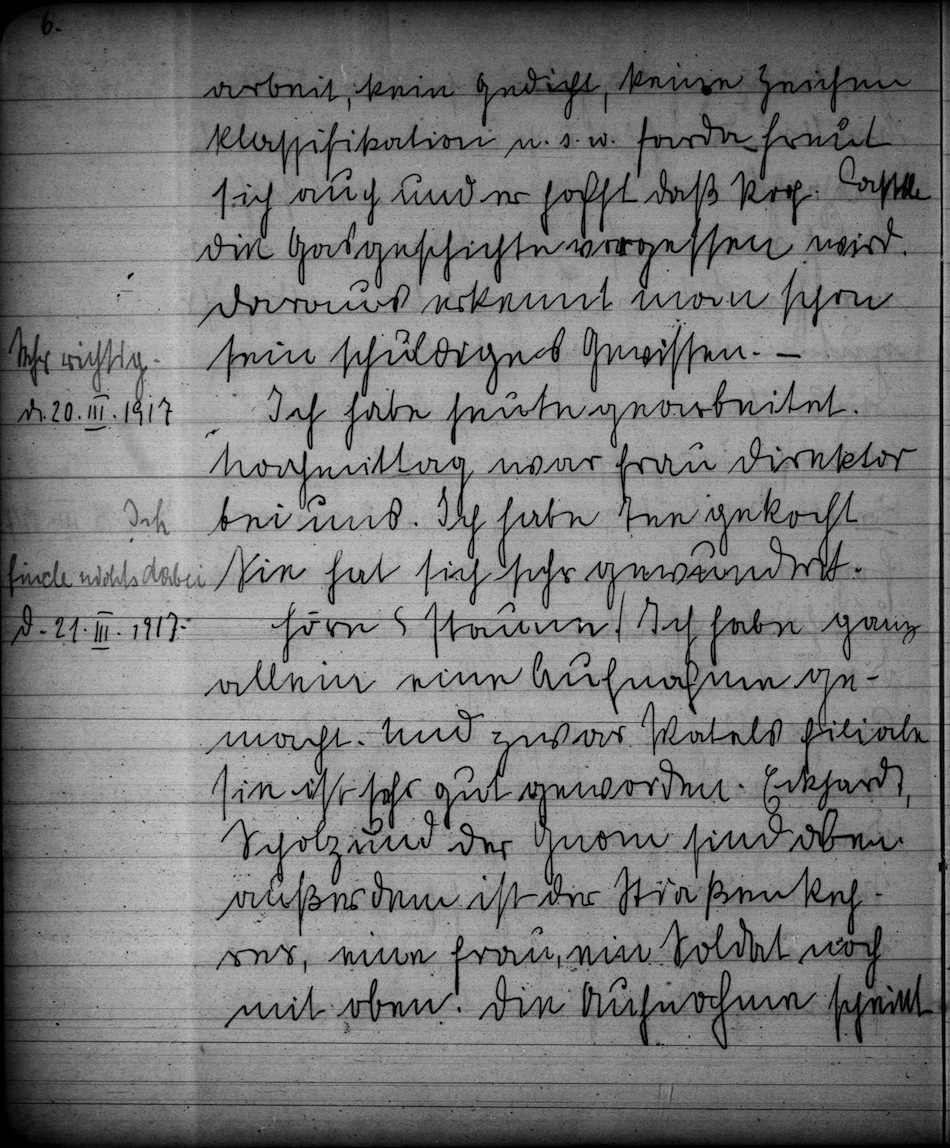 6.
arbeit, kein Gedicht, keine Zeichen
klassifikation u. s. w. freut
sich auch und er hofft daß
die Gasgeschichte vergessen wird.
daraus erkennt man schon
sein schuldiges Gewissen. –
Sehr richtig.
d. 20. III. 1917
Ich habe heute gearbeitet.
Nachmittag war Frau Direktor
bei uns. Ich habe Tee gekocht
Sie hat sich sehr gewundert.
Ich
finde nichts dabei
d. 21. III. 1917.
Höre & staune! Ich habe ganz
allein eine Aufnahme ge-
macht. Und zwar Watels Filiale
sie ist sehr gut geworden. Eckhardt,
Scholz und der Gnom sind oben.
außerdem ist der Straßenkeh-
rer, eine Frau, ein Soldat noch
mit oben. Die Aufnahme scheint